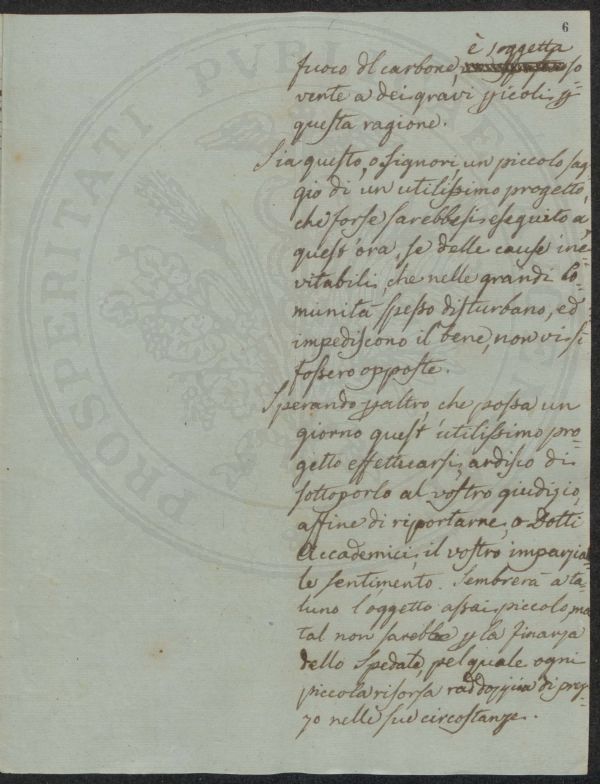 6
è soggetta
fuoco del carbone, so=
vente a dei gravi picoli, p
questa ragione.
Sia questo, o Signori, un piccolo sag=
gio di un utilissimo progetto,
che forse sarebbesi eseguito a
quest'ora, se delle cause ine=
vitabili, che nelle grandi Co=
munità spesso disturbano, ed
impediscono il bene, non vi si
fossero opposte.
Sperando p altro, che possa un
giorno quest'utilissimo pro=
getto effettuarsi, ardisco di
sottoporlo al vostro giudizio,
affine di riportarne, o Dotti
Accademici, il vostro imparzia=
le sentimento. Sembrerà a ta=
luno l'oggetto assai piccolo, ma
tal non sarebbe p la finanza
dello Spedale, pel quale ogni
piccola risorsa raddoppia di prez=
zo nelle sue circostanze.
PROSPERITATI PUBLICAE